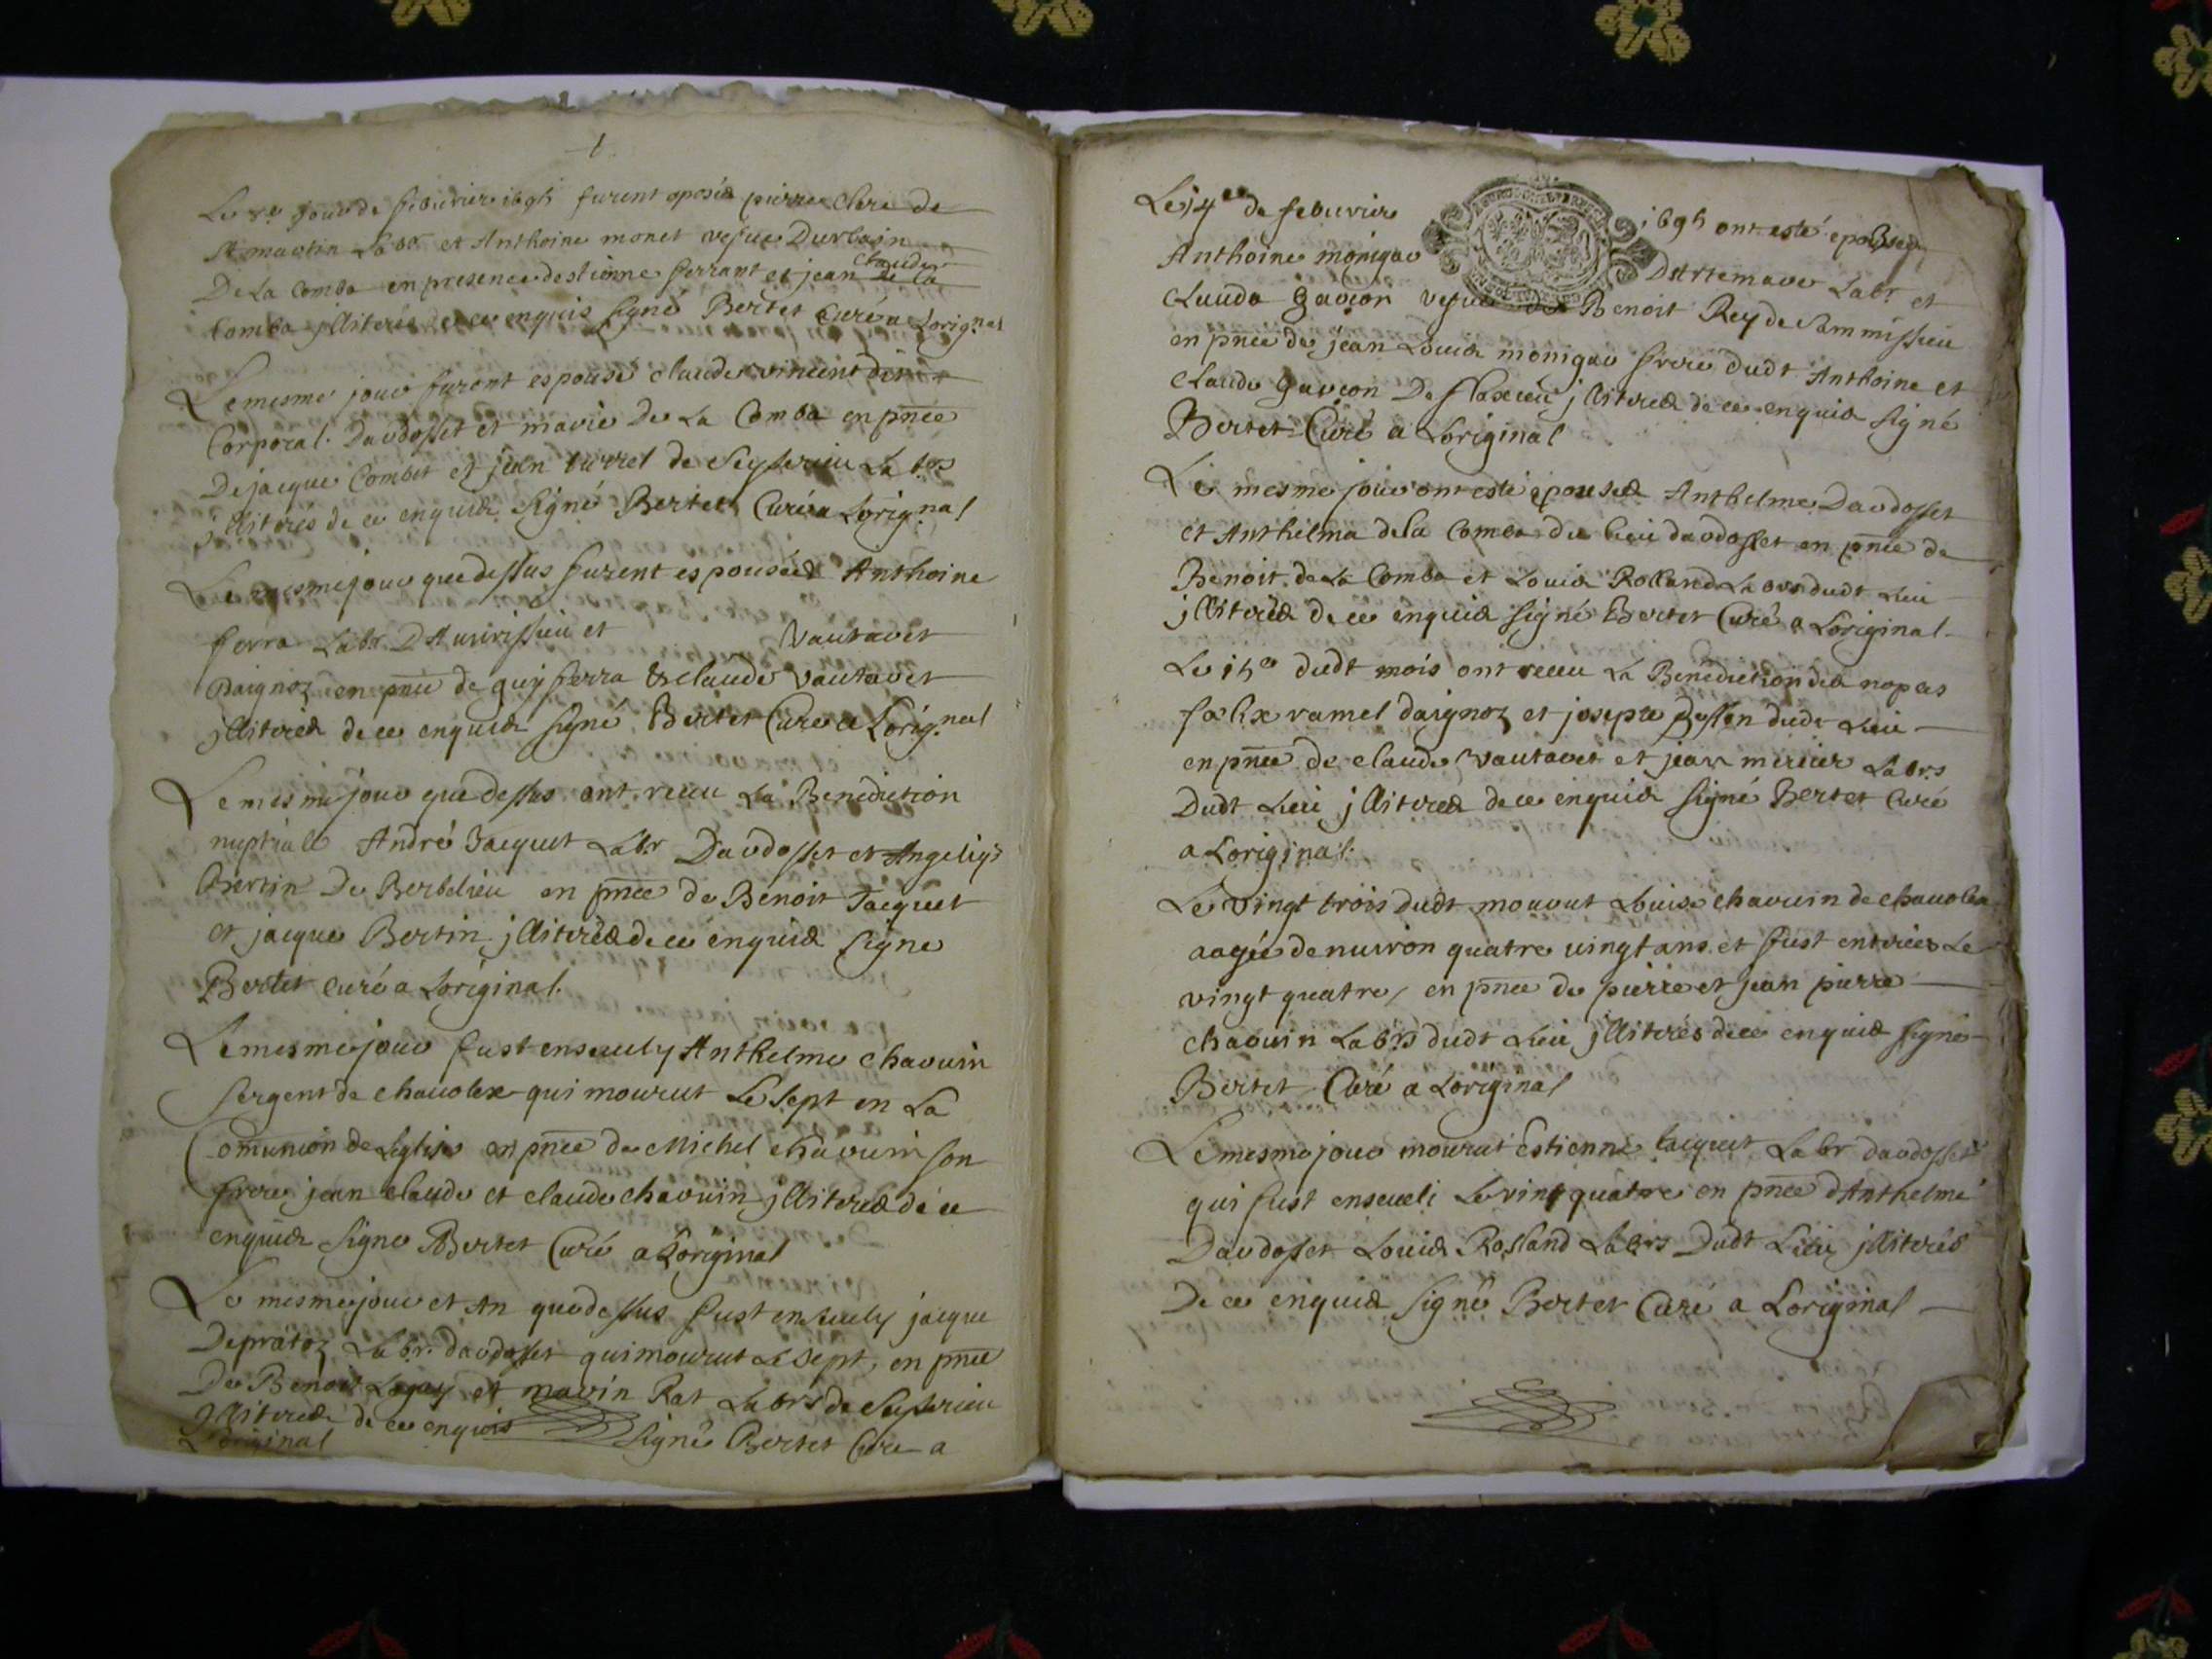 Le 8e jour de febvrier 1695 furent eposés pierre Clerc de
St martin Labr. et Anthoine monet vefue Durbain
claude
De La Comba en presence destienne ferrant et jean de La
Comba jlliterés de ce enquis signé Bertet Curé a Lorig.nal
Le mesme jour furent espousé claude vincent dit
Corporal. Davdosset et marie De La Comba en pnce
De jacque Combet et jean turrel de Seysseriu Labrs
jlliterés de ce enquis Signé Bertet Curé a Lorig.nal
Le mesme jour que dessus furent espousés Anthoine
ferra Labr. et vautaret
Daignoz en pnce de guy ferra & claude vautaret
jlliterés de ce enquis signé Bertet Curé a Lorig.nal
Le mesme jour que dessus ont receu La Benediction
nuptiall André Jacquet Labr Davdosset et Angeliq
Bertin De Berbelieu en pnce de Benoit Jacquet
et jacque Bertin jlliterés de ce enquis signe
Bertet curé a Loriginal.
Le mesme jour fust enseuely Anthelme chavuin
sergent de chauolex qui mourut Le sept en La
Comunion de Leglise en pnce de Michel chavuin son
frere jean claude et claude chavuin jlliterés de ce
enquis signe Bertet Curé a Loriginal
Le mesme jour et An que dessus fust enseuely jacque
Depratoz Labr. davdosset qui mourut Le sept, en pnce
De Benoit Lagay et marin Rat Labrs de Susserieu
Jlliterés de ce enquis signé Bertet Cure a
Loriginal
Le 14e de febuvrier 1695 ont esté epousez
Anthoine monigav Dartemare Labr. et
Clauda gavion vefue de Benoit Rey de Sammissieu
en pnce de jean Louis monigav frere dudt Anthoine et
Claude gavion De flaxieu jlliterés de ce enquis signé
Bertet Curé a Loriginal
Le mesme jour ont esté epousés Anthelme Davdosset
et Anthelma dela Comba du lieu davdosset en pnce de
Benoit de La Comba et Louis Rolland Labrs dudt Lieu
jlliterés de ce enquis signé Bertet Curé a Loriginal.
Le 15e dudt mois ont receu La Benediction des nopces
foelix ramel daignoz et josepte dudt Lieu
en pnce de claude vautaret et jean mercier Labrs
Dudt Lieu jlliterés de ce enquis signé Bertet Curé
a Loriginal.
Le vingt trois dudt mourut Louise chavuin de chauolex
aagée denuiron quatre vingt ans et fust enterrée Le
vingt quatre, en pnce de pierre et jean pierre
chavuin Labrs dudt Lieu jlliterés de ce enquis signé
Bertet Curé a Loriginal
Le mesme jour mourut Estienne Jacquet Labr davdosset
qui fust enseueli Le vint quatre en pnce dAnthelme
Davdosset Louis Rolland Labrs Dudt Lieu jlliterés
De ce enquis signé Bertet Curé a Loriginal